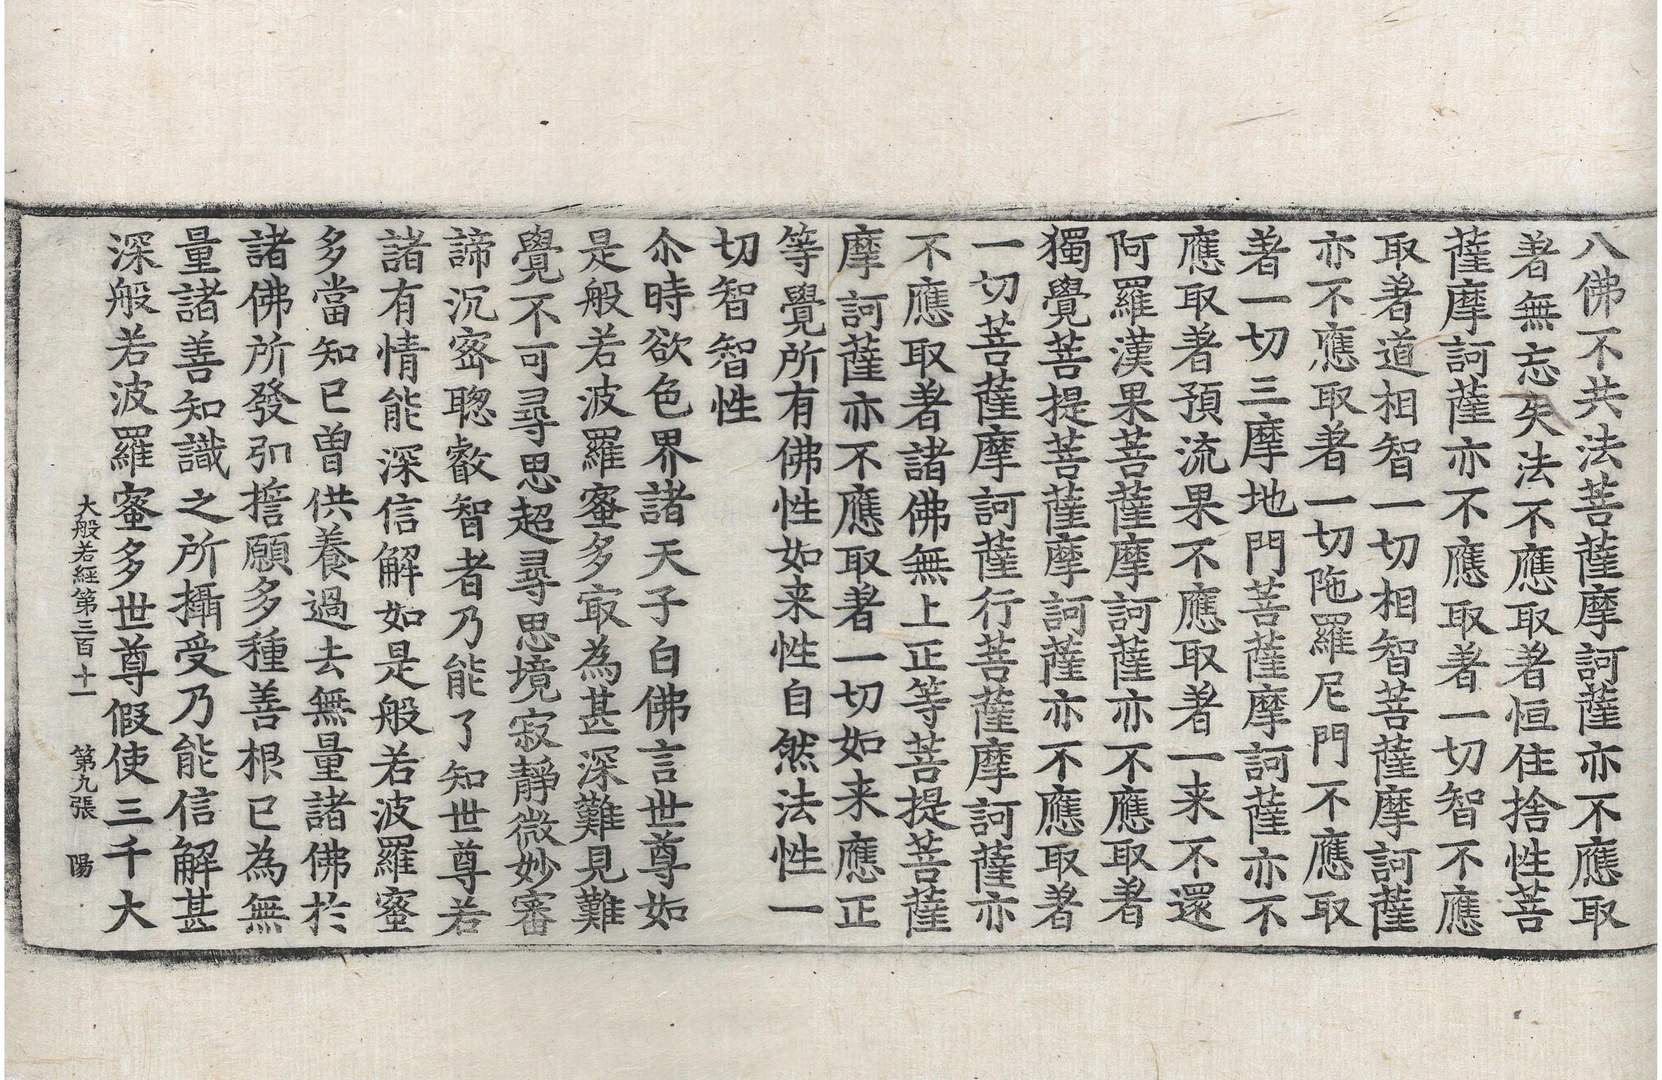 八佛不共法菩薩摩訶薩亦不應取
著無忘失法不應取著恒住捨性菩
薩摩訶薩亦不應取著一切智不應
取著道相智一切相智菩薩摩訶薩
亦不應取著一切陁羅尼門不應取
著一切三摩地門菩薩摩訶薩亦不
應取著預流果不應取著一来不還
阿羅漢果菩薩摩訶薩亦不應取著
獨覺菩提菩薩摩訶薩亦不應取著
一切菩薩摩訶薩行菩薩摩訶薩亦
不應取著諸佛無上正等菩提菩薩
摩訶薩亦不應取著一切如来應正
等覺所有佛性如来性自然法性一
切智智性
尒時欲色界諸天子白佛言世尊如
是般若波羅蜜多㝡為甚深難見難
覺不可尋思超尋思境寂靜微妙審
諦沉密聡叡智者乃能了知世尊若
諸有情能深信解如是般若波羅蜜
多當知已曾供養過去無量諸佛於
諸佛所發弘誓願多種善根已為無
量諸善知識之所攝受乃能信解甚
深般若波羅蜜多世尊假使三千大
大般若経第三百十一 第九張 陽